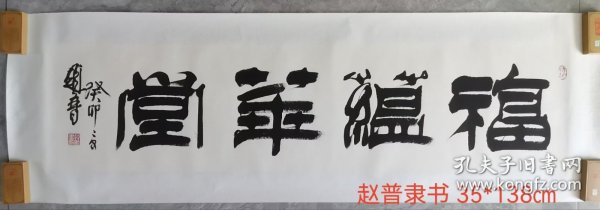 福蕴华堂
癸卯之
赵普
赵普隶书 35*138cm
孔夫子旧书网
www.kongfz.com